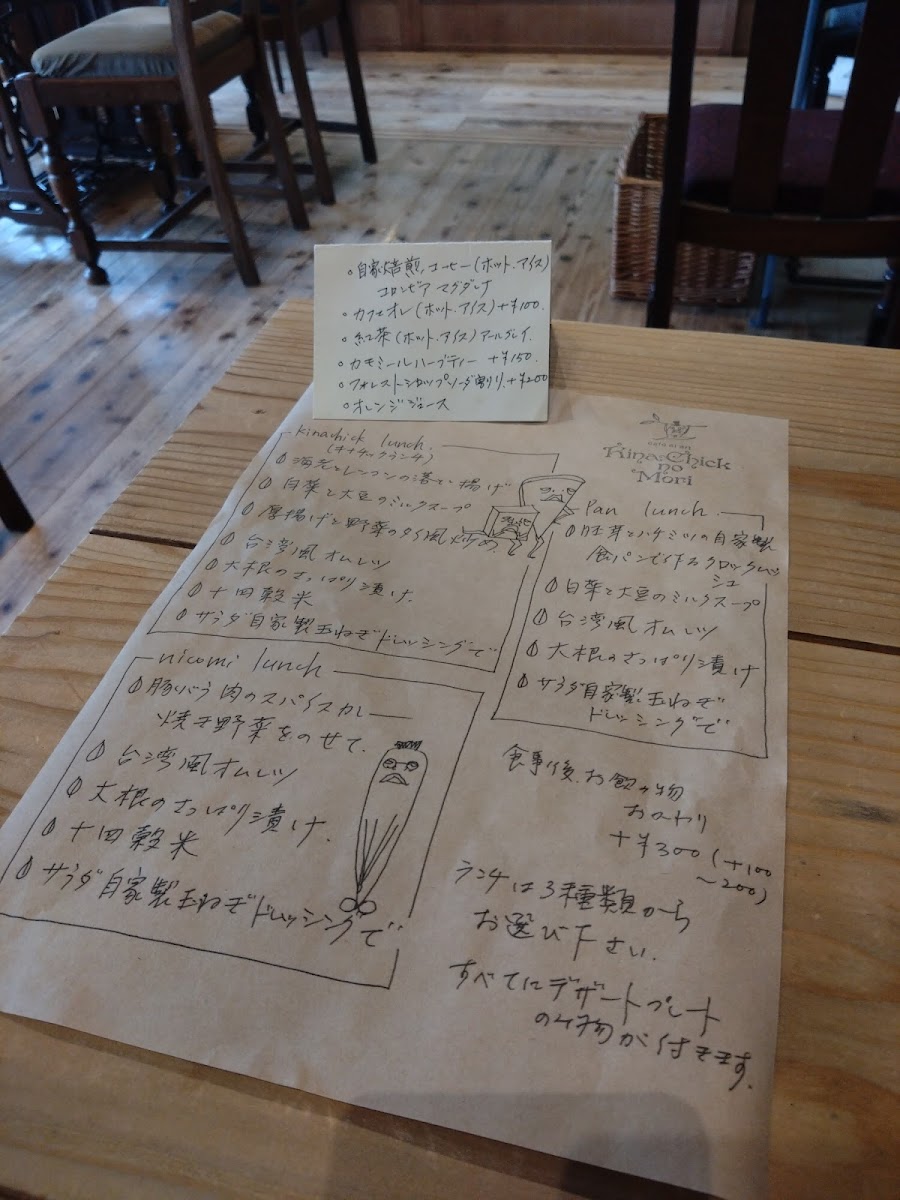 。自家焙煎コーヒー(ホット・アイス)
コロンビア マグダレナ
。カフェオレ(ホット・アイス)+¥100.
。紅茶(ホット・アイス)アールグレイ.
。カモミールハーブティー +¥150.
。フォレストシロップソーダ割り.+¥200
。オレンジジュース
Kina Chick
no
Mori
kinachick lunch.
(キナチックランチ)
海老とレンコンの落とし揚げ
白菜と大豆のミルクスープ
厚揚げと野菜のタイ風炒め.
台湾風オムレツ
大根のさっぱり漬け.
十四穀米
サラダ自家製玉ねぎドレッシングで
Pan lunch.
胚芽とハチミツの自家製
食パンで作るクロックムッ
シュ
白菜と大豆のミルクスープ
台湾風オムレツ
大根のさっぱり漬け
サラダ自家製玉ねぎ
ドレッシングで
nicomi lunch
豚バラ肉のスパイスカレー
焼き野菜をのせて.
台湾風オムレツ
大根のさっぱり漬け.
十四穀米
サラダ自家製玉ねぎドレッシングで
食事後.お飲み物
おかわり
+¥300(+100
〜200)
ランチは3種類から
お選び下さい.
すべてにデザートプレート
お飲物が付きます.